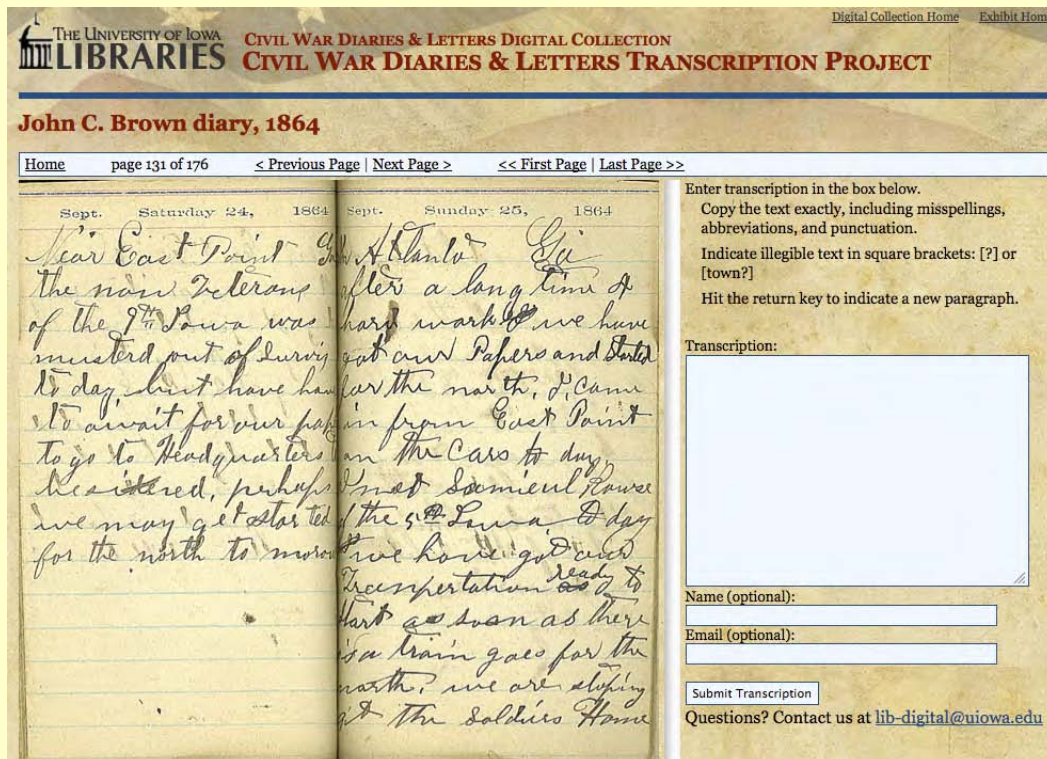 Digital Collection Home Exhibit Hom
THE UNIVERSITY OF IOWA
LIBRARIES
CIVIL WAR DIARIES & LETTERS DIGITAL COLLECTION
CIVIL WAR DIARIES & LETTERS TRANSCRIPTION PROJECT
John C. Brown diary, 1864
Home page 131 of 176 < Previous Page | Next Page > << First Page | Last Page >>
Sept. Saturday 24, 1864
Near East Point Ga
the non Veterans
of the 9th Iowa was
musterd out of
to day, but have
to await for our pap
to go to Headquarters
perhaps
we may get started
for the north to morow
Sept. Sunday 25, 1864
Attlanta Ga
after a long time of
hard work we have
got our Papers and Started
for the north, I, came
in from East Point
on the Cars to day,
I met Samieul Rowse
of the 5th Iowa, to day
we have got our
Transpertation ready to
start as soon as there
is a train goes for the
north, we are stoping
at the Soldiers Home
Enter transcription in the box below.
Copy the text exactly, including misspellings,
abbreviations, and punctuation.
Indicate illegible text in square brackets: [?] or
[town?]
Hit the return key to indicate a new paragraph.
Transcription:
Name (optional):
Email (optional):
Submit Transcription
Questions? Contact us at lib-digital@uiowa.edu